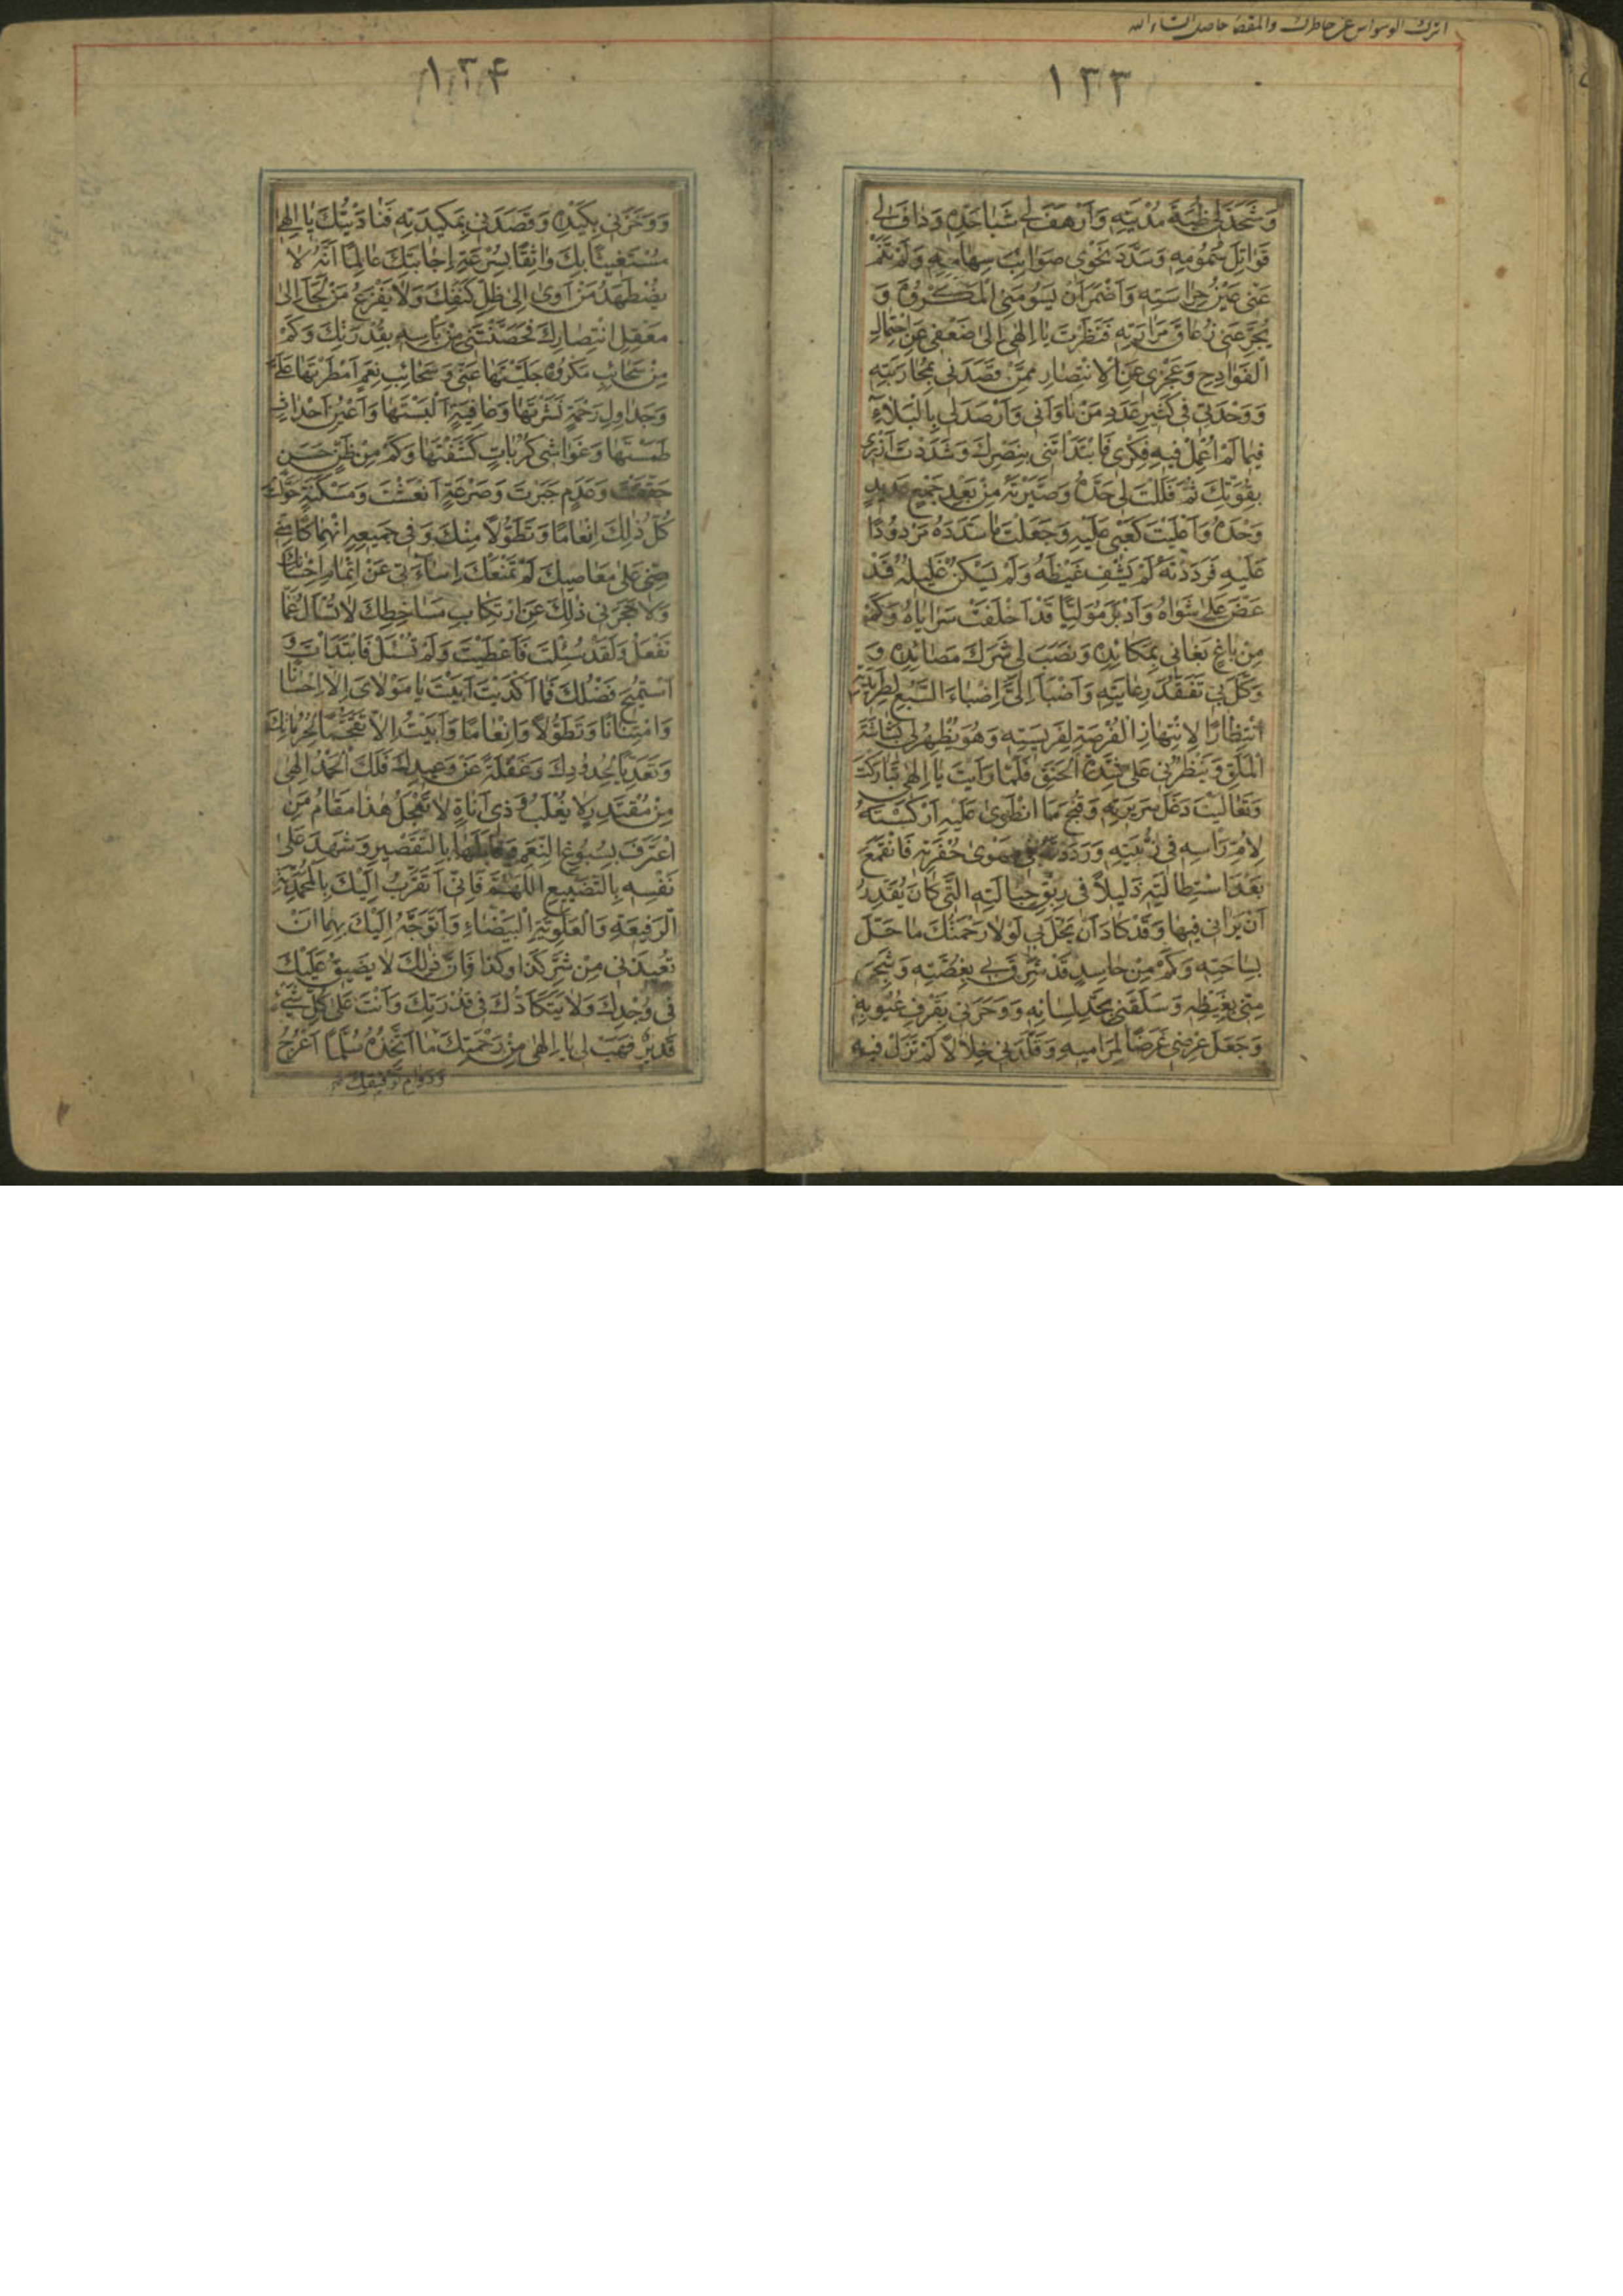 اترك الوسواس عن خاطرك والمقصد حاصل انشاء الله
۱۳۳
وَشَحَذَ لِي ظُبَةَ مُدْيَتِهِ وَاَرْهَفَ لِي شَبَا حَدِّهِ وَدَافَ لِي
قَوَاتِلَ سُمُومِهِ وَسَدَّدَ نَحْوِي صَوَائِبَ سِهَامِهِ وَلَمْ تَنَمْ
عَنِّي عَيْنُ حِرَاسَتِهِ وَاَضْمَرَ اَنْ يَسُومَنِي الْمَكْرُوهَ وَ
يُجَرِّعَنِي زُعَاقَ مَرَارَتِهِ فَنَظَرْتَ يَا اِلٰهِي اِلٰى ضَعْفِي عَنِ احْتِمَالِ
الْفَوَادِحِ وَعَجْزِي عَنِ الْاِنْتِصَارِ مِمَّنْ قَصَدَنِي بِمُحَارَبَتِهِ
وَوَحْدَتِي فِي كَثِيرِ عَدَدِ مَنْ نَاوَانِي وَاَرْصَدَ لِي بِالْبَلَاءِ
فِيمَا لَمْ اُعْمِلْ فِيهِ فِكْرِي فَابْتَدَاْتَنِي بِنَصْرِكَ وَشَدَدْتَ اَزْرِي
بِقُوَّتِكَ ثُمَّ فَلَلْتَ لِي حَدَّهُ وَصَيَّرْتَهُ مِنْ بَعْدِ جَمْعٍ عَدِيدٍ
وَحْدَهُ وَاَعْلَيْتَ كَعْبِي عَلَيْهِ وَجَعَلْتَ مَا سَدَّدَهُ مَرْدُودًا
عَلَيْهِ فَرَدَدْتَهُ لَمْ يَشْفِ غَيْظَهُ وَلَمْ يَسْكُنْ غَلِيلُهُ قَدْ
عَضَّ عَلٰى شَوَاهُ وَاَدْبَرَ مُوَلِّيًا قَدْ اَخْلَفَتْ سَرَايَاهُ وَكَمْ
مِنْ بَاغٍ بَغَانِي بِمَكَائِدِهِ وَنَصَبَ لِي شَرَكَ مَصَائِدِهِ وَ
وَكَّلَ بِي تَفَقُّدَ رِعَايَتِهِ وَاَضْبَاَ اِلَيَّ اِضْبَاءَ السَّبُعِ لِطَرِيدَتِهِ
انْتِظَارًا لِانْتِهَازِ الْفُرْصَةِ لِفَرِيسَتِهِ وَهُوَ يُظْهِرُ لِي بَشَاشَةَ
الْمَلَقِ وَيَنْظُرُنِي عَلٰى شِدَّةِ الْحَنَقِ فَلَمَّا رَاَيْتَ يَا اِلٰهِي تَبَارَكْتَ
وَتَعَالَيْتَ دَغَلَ سَرِيرَتِهِ وَقُبْحَ مَا انْطَوٰى عَلَيْهِ اَرْكَسْتَهُ
لِاُمِّ رَاْسِهِ فِي زُبْيَتِهِ وَرَدَدْتَهُ فِي مَهْوٰى حُفْرَتِهِ فَانْقَمَعَ
بَعْدَ اسْتِطَالَتِهِ ذَلِيلًا فِي رِبَقِ حِبَالَتِهِ الَّتِي كَانَ يُقَدِّرُ
اَنْ يَرَانِي فِيهَا وَقَدْ كَادَ اَنْ يَحُلَّ بِي لَوْلَا رَحْمَتُكَ مَا حَلَّ
بِسَاحَتِهِ وَكَمْ مِنْ حَاسِدٍ قَدْ شَرِقَ بِي بِغُصَّتِهِ وَشَجِيَ
مِنِّي بِغَيْظِهِ وَسَلَقَنِي بِحَدِّ لِسَانِهِ وَوَحَرَنِي بِقَرْفِ عُيُوبِهِ
وَجَعَلَ عِرْضِي غَرَضًا لِمَرَامِيهِ وَقَلَّدَنِي خِلَالًا لَمْ تَزَلْ فِيهِ
۱۳۴
وَوَخَزَنِي بِكَيْدِهِ وَقَصَدَنِي بِمَكِيدَتِهِ فَنَادَيْتُكَ يَا اِلٰهِي
مُسْتَغِيثًا بِكَ وَاثِقًا بِسُرْعَةِ اِجَابَتِكَ عَالِمًا اَنَّهُ لَا
يُضْطَهَدُ مَنْ اَوٰى اِلٰى ظِلِّ كَنَفِكَ وَلَا يَفْزَعُ مَنْ لَجَاَ اِلٰى
مَعْقِلِ انْتِصَارِكَ فَحَصَّنْتَنِي مِنْ بَاْسِهِ بِقُدْرَتِكَ وَكَمْ
مِنْ سَحَائِبِ مَكْرُوهٍ جَلَّيْتَهَا عَنِّي وَسَحَائِبِ نِعَمٍ اَمْطَرْتَهَا عَلَيَّ
وَجَدَاوِلِ رَحْمَةٍ نَشَرْتَهَا وَعَافِيَةٍ اَلْبَسْتَهَا وَاَعْيُنِ اَحْدَاثٍ
طَمَسْتَهَا وَغَوَاشِي كُرُبَاتٍ كَشَفْتَهَا وَكَمْ مِنْ ظَنٍّ حَسَنٍ
حَقَّقْتَ وَعَدَمٍ جَبَرْتَ وَصَرْعَةٍ اَنْعَشْتَ وَمَسْكَنَةٍ حَوَّلْتَ
كُلُّ ذٰلِكَ اِنْعَامًا وَتَطَوُّلًا مِنْكَ وَفِي جَمِيعِهِ انْهِمَاكًا
مِنِّي عَلٰى مَعَاصِيكَ لَمْ تَمْنَعْكَ اِسَاءَتِي عَنْ اِتْمَامِ اِحْسَانِكَ
وَلَا حَجَرَنِي ذٰلِكَ عَنِ ارْتِكَابِ مَسَاخِطِكَ لَا تُسْاَلُ عَمَّا
تَفْعَلُ وَلَقَدْ سُئِلْتَ فَاَعْطَيْتَ وَلَمْ تُسْئَلْ فَابْتَدَاْتَ وَ
اسْتُمِيحَ فَضْلُكَ فَمَا اَكْدَيْتَ اَبَيْتَ يَا مَوْلَايَ اِلَّا اِحْسَانًا
وَامْتِنَانًا وَتَطَوُّلًا وَاِنْعَامًا وَاَبَيْتُ اِلَّا تَقَحُّمًا لِحُرُمَاتِكَ
وَتَعَدِّيًا لِحُدُودِكَ وَغَفْلَةً عَنْ وَعِيدِكَ فَلَكَ الْحَمْدُ اِلٰهِي
مِنْ مُقْتَدِرٍ لَا يُغْلَبُ وَذِي اَنَاةٍ لَا تَعْجَلُ هٰذَا مَقَامُ مَنِ
اعْتَرَفَ بِسُبُوغِ النِّعَمِ وَقَابَلَهَا بِالتَّقْصِيرِ وَشَهِدَ عَلٰى
نَفْسِهِ بِالتَّضْيِيعِ اَللّٰهُمَّ فَاِنِّي اَتَقَرَّبُ اِلَيْكَ بِالْمُحَمَّدِيَّةِ
الرَّفِيعَةِ وَالْعَلَوِيَّةِ الْبَيْضَاءِ وَاَتَوَجَّهُ اِلَيْكَ بِهِمَا اَنْ
تُعِيذَنِي مِنْ شَرِّ كَذَا وَكَذَا فَاِنَّ ذٰلِكَ لَا يَضِيقُ عَلَيْكَ
فِي وُجْدِكَ وَلَا يَتَكَاَّدُكَ فِي قُدْرَتِكَ وَاَنْتَ عَلٰى كُلِّ شَيْءٍ
قَدِيرٌ فَهَبْ لِي يَا اِلٰهِي مِنْ رَحْمَتِكَ مَا اَتَّخِذُهُ سُلَّمًا اَعْرُجُ
وَدَوَامِ تَوْفِيقِكَ